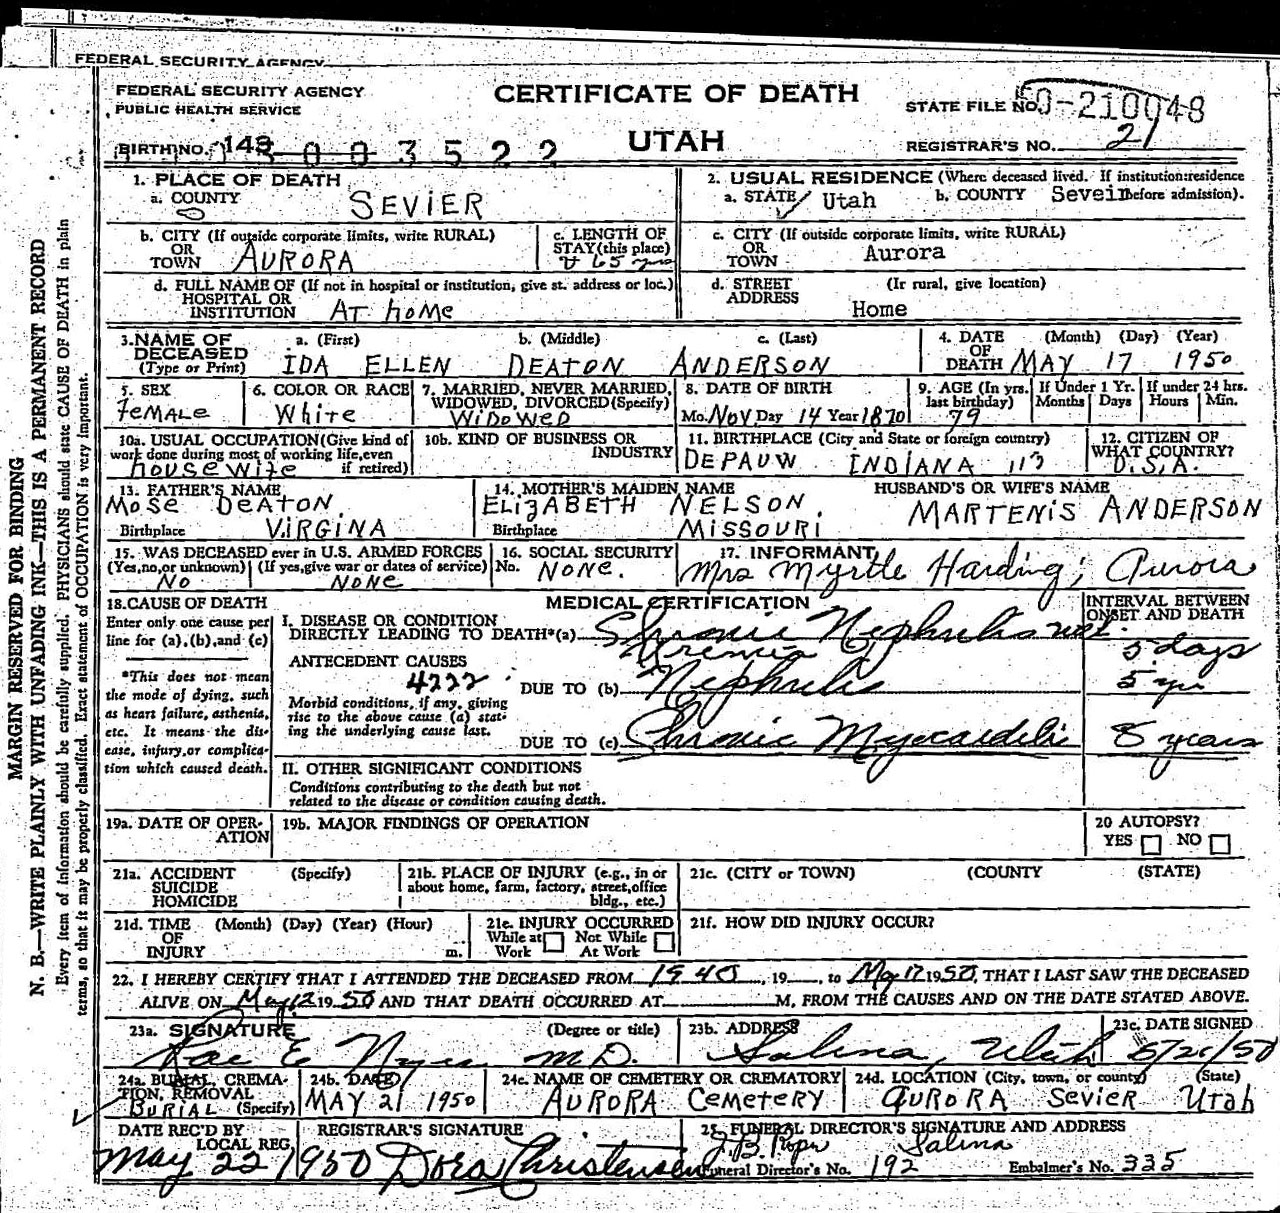 FEDERAL SECURITY AGENCY
FEDERAL SECURITY AGENCY
PUBLIC HEALTH SERVICE
CERTIFICATE OF DEATH
UTAH
STATE FILE NO. 50-210048
BIRTH NO. 143 003522
REGISTRAR'S NO. 21
1. PLACE OF DEATH
a. COUNTY SEVIER
2. USUAL RESIDENCE (Where deceased lived. If institution:residence before admission).
a. STATE Utah b. COUNTY Seveir
b. CITY (If outside corporate limits, write RURAL) OR TOWN AURORA
c. LENGTH OF STAY (this place) 65 yrs
c. CITY (If outside corporate limits, write RURAL) OR TOWN Aurora
d. FULL NAME OF (If not in hospital or institution, give st. address or loc.) HOSPITAL OR INSTITUTION AT hOMe
d. STREET ADDRESS (Ir rural, give location) Home
3. NAME OF DECEASED (Type or Print)
a. (First) b. (Middle) c. (Last)
IDA ELLEN DEATON ANDERSON
4. DATE OF DEATH (Month) (Day) (Year) MAY 17 1950
5. SEX FeMALe
6. COLOR OR RACE White
7. MARRIED, NEVER MARRIED, WIDOWED, DIVORCED (Specify) WiDoWeD
8. DATE OF BIRTH Mo. Nov Day 14 Year 1870
9. AGE (In yrs. last birthday) 79
If Under 1 Yr. Months Days
If under 24 hrs. Hours Min.
10a. USUAL OCCUPATION (Give kind of work done during most of working life, even if retired) housewife
10b. KIND OF BUSINESS OR INDUSTRY
11. BIRTHPLACE (City and State or foreign country) DEPAUW INDIANA 113
12. CITIZEN OF WHAT COUNTRY? U.S.A.
13. FATHER'S NAME MOSe DeATON.
Birthplace VIRGINA
14. MOTHER'S MAIDEN NAME ELIZABETH NELSON.
Birthplace MISSOURI
HUSBAND'S OR WIFE'S NAME MARTENIS ANDERSON
15. WAS DECEASED ever in U.S. ARMED FORCES (Yes, no, or unknown) No (If yes, give war or dates of service) NONe
16. SOCIAL SECURITY No. NONe.
17. INFORMANT Mrs Myrtle Harding; Aurora
18. CAUSE OF DEATH
Enter only one cause per line for (a), (b), and (c)
*This does not mean the mode of dying, such as heart failure, asthenia, etc. It means the disease, injury, or complication which caused death.
MEDICAL CERTIFICATION
INTERVAL BETWEEN ONSET AND DEATH
I. DISEASE OR CONDITION DIRECTLY LEADING TO DEATH*(a) Chronic Nephritis
Uremia 5 days
ANTECEDENT CAUSES
4222
Morbid conditions, if any, giving rise to the above cause (a) stating the underlying cause last.
DUE TO (b) Nephritis 5 yr
DUE TO (c) Chronic Myocarditis 8 years
II. OTHER SIGNIFICANT CONDITIONS
Conditions contributing to the death but not related to the disease or condition causing death.
19a. DATE OF OPERATION
19b. MAJOR FINDINGS OF OPERATION
20 AUTOPSY? YES NO
21a. ACCIDENT SUICIDE HOMICIDE (Specify)
21b. PLACE OF INJURY (e.g., in or about home, farm, factory, street, office bldg., etc.)
21c. (CITY or TOWN) (COUNTY) (STATE)
21d. TIME OF INJURY (Month) (Day) (Year) (Hour) m.
21e. INJURY OCCURRED While at Work Not While At Work
21f. HOW DID INJURY OCCUR?
22. I HEREBY CERTIFY THAT I ATTENDED THE DECEASED FROM 1940, 19__, to May 17 1950, THAT I LAST SAW THE DECEASED
ALIVE ON May 12 1950 AND THAT DEATH OCCURRED AT M., FROM THE CAUSES AND ON THE DATE STATED ABOVE.
23a. SIGNATURE (Degree or title) Rae E Noyes M.D.
23b. ADDRESS Salina, Utah
23c. DATE SIGNED 5/20/50
24a. BURIAL, CREMATION, REMOVAL (Specify) BURIAL
24b. DATE MAY 21 1950
24c. NAME OF CEMETERY OR CREMATORY AURORA CeMeTeRY
24d. LOCATION (City, town, or county) (State) AURORA SevieR Utah
DATE REC'D BY LOCAL REG. May 22 1950
REGISTRAR'S SIGNATURE Dora Christensen
25. FUNERAL DIRECTOR'S SIGNATURE AND ADDRESS
Salina
Funeral Director's No. 192 Embalmer's No. 335
MARGIN RESERVED FOR BINDING
N. B.—WRITE PLAINLY WITH UNFADING INK—THIS IS A PERMANENT RECORD
Every item of information should be carefully supplied. PHYSICIANS should state CAUSE OF DEATH in plain
terms, so that it may be properly classified. Exact statement of OCCUPATION is very important.